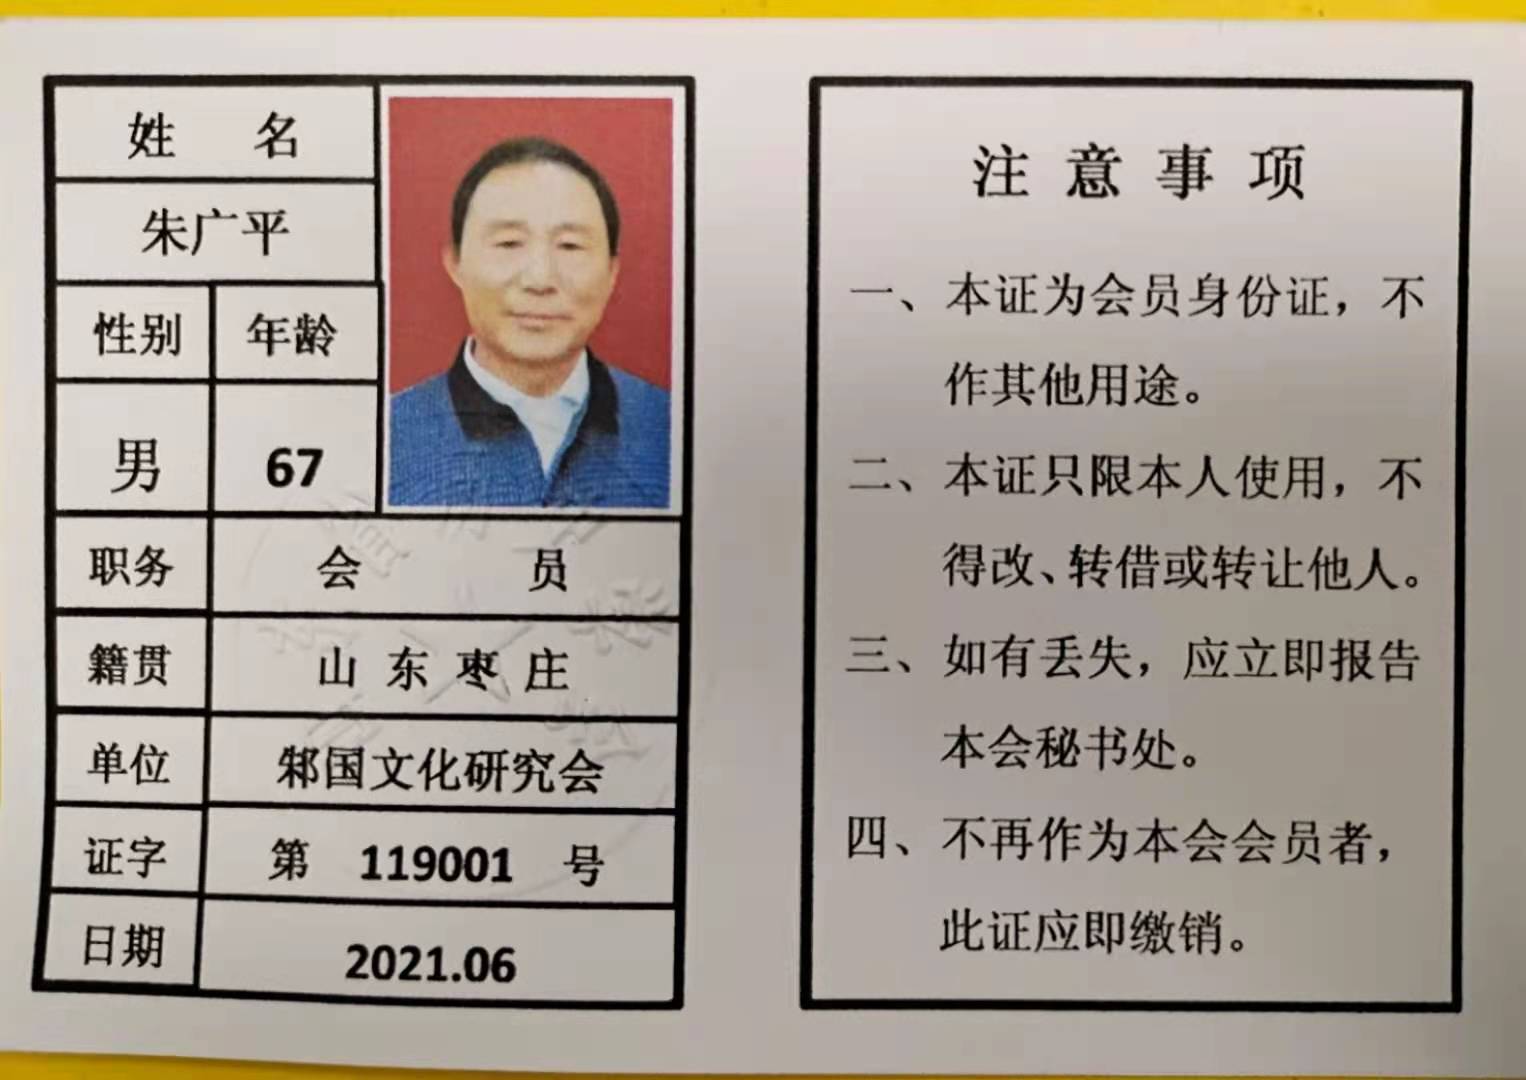 姓 名
朱广平
性别 年龄
男 67
职务 会 员
籍贯 山东枣庄
单位 邾国文化研究会
证字 第 119001 号
日期 2021.06
注意事项
一、本证为会员身份证，不
作其他用途。
二、本证只限本人使用，不
得改、转借或转让他人。
三、如有丢失，应立即报告
本会秘书处。
四、不再作为本会会员者，
此证应即缴销。